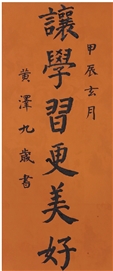 甲辰玄月
讓學習更美好
黄澤九歲書